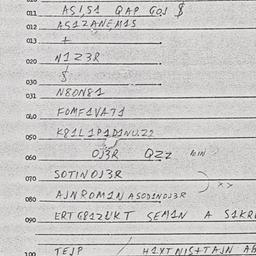 011 ASISI QAP GOS $
012 ASIZANEMIS
013 +
020 NIZ3R
030 $
031 N80N81
040 FOMFIVA71
050 K81L1P1D1NUZ2
060 OJ3R QZZ MIN
070 SOTINOJ3R
080 AJNROMIN ASODINOJ3R >>
090 ERTG81ZUKT SEMIN A SIKR
100 TEJP / HIXTNIS+TAJN AB